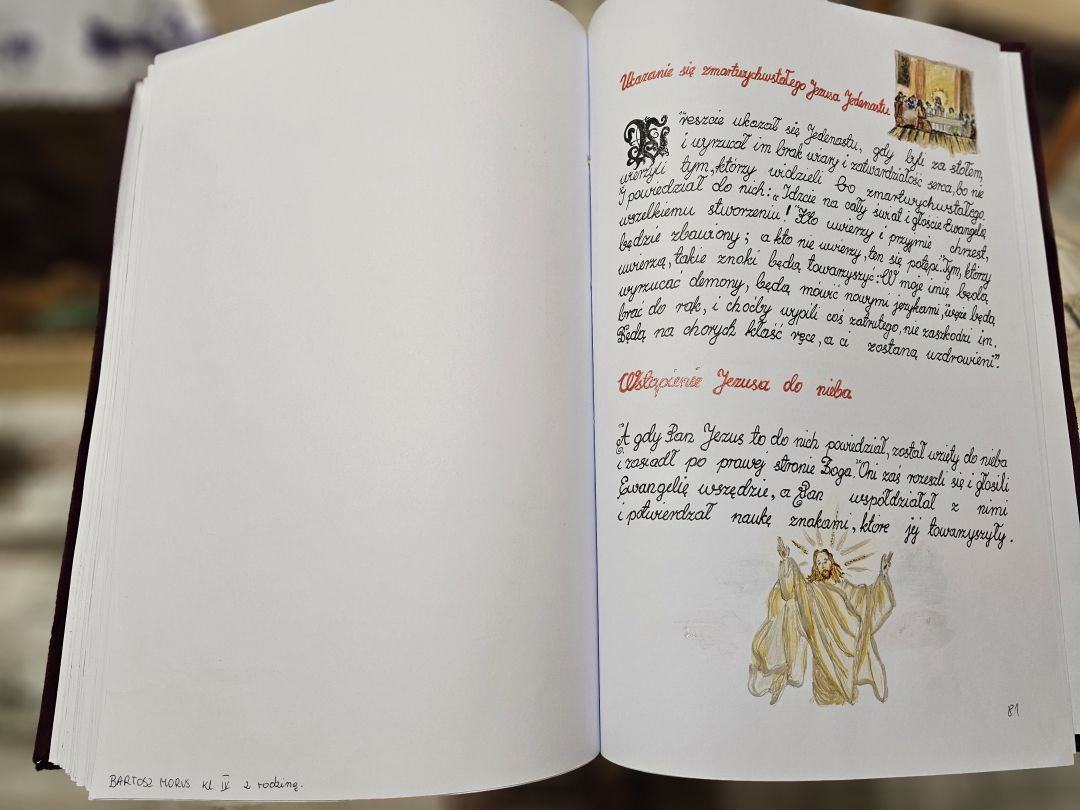 BARTOSZ MORUS kl. IV z rodziną.
Ukazanie się zmartwychwstałego Jezusa Jedenastu
Wreszcie ukazał się Jedenastu, gdy byli za stołem,
i wyrzucał im brak wiary i zatwardziałość serca, bo nie
wierzyli tym, którzy widzieli Go zmartwychwstałego.
I powiedział do nich: „Idźcie na cały świat i głoście Ewangelię
wszelkiemu stworzeniu! Kto uwierzy i przyjmie chrzest,
będzie zbawiony; a kto nie uwierzy, ten się potępi. Tym, którzy
uwierzą, takie znaki będą towarzyszyć: W moje imię będą
wyrzucać demony, będą mówić nowymi językami, węże będą
brać do rąk, i choćby wypili coś zatrutego, nie zaszkodzi im.
Będą na chorych kłaść ręce, a ci zostaną uzdrowieni".
Wstąpienie Jezusa do nieba
A gdy Pan Jezus to do nich powiedział, został wzięty do nieba
i zasiadł po prawej stronie Boga. Oni zaś rozeszli się i głosili
Ewangelię wszędzie, a Pan współdziałał z nimi
i potwierdzał naukę znakami, które jej towarzyszyły.
81